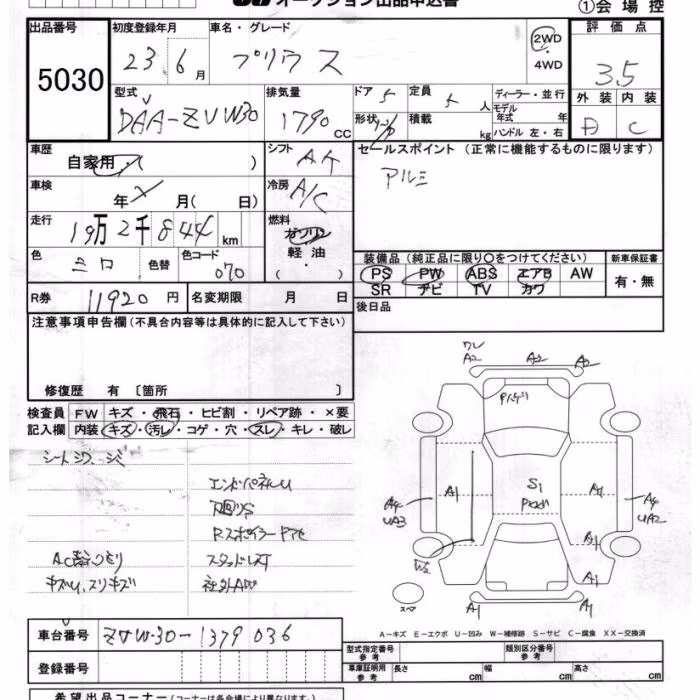 オークション出品申込書
①会場控
出品番号 初度登録年月 車名・グレード 2WD 評価点
5030 23 6月 プリウス 4WD 3.5
型式 排気量 ドア 5 定員 5人 ディーラー・並行 外装 内装
DAA-ZVW30 1790cc 形状 積載 kg モデル年式 年 C
ハンドル 左・右
車歴 シフト セールスポイント (正常に機能するものに限ります)
自家用・( ) AT アルミ
車検 冷房
年 月( 日) A/C
走行 燃料
19万2千844km ガソリン
色 色替 色コード 軽油 装備品 (純正品に限り○をつけてください) 新車保証書
シロ 070 PS PW ABS エアB AW 有・無
SR ナビ TV カワ
R券 11920円 名変期限 月 日 後日品
注意事項申告欄(不具合内容等は具体的に記入して下さい)
修復歴 有 〔箇所 〕
検査員 FW キズ・飛石・ヒビ割・リペア跡・×要
記入欄 内装 キズ・汚レ・コゲ・穴・スレ・キレ・破レ
A2 A2 A2
S1
A4 A1 A1 A4
UA3 UA2
A1
W2 A1
スペア A1 A1
A-キズ E-エクボ U-凹み W-補修跡 S-サビ C-腐食 XX-交換済
車台番号 ZVW30-1379036
登録番号
型式指定番号 参考 類別区分番号 参考
車庫証明用 参考 長さ cm 幅 cm 高さ cm
希望出品コーナー(コーナーは各会場により異なります)